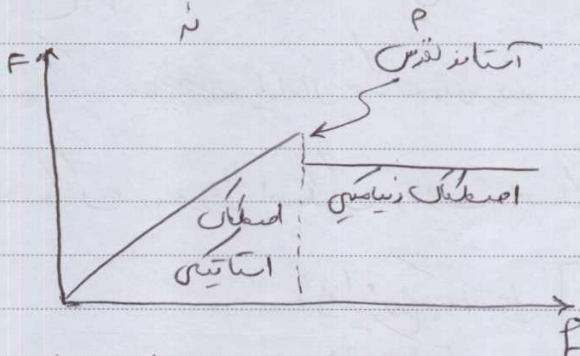 آستانه لغزش
F
اصطکاک
استاتیکی
اصطکاک دینامیکی
P